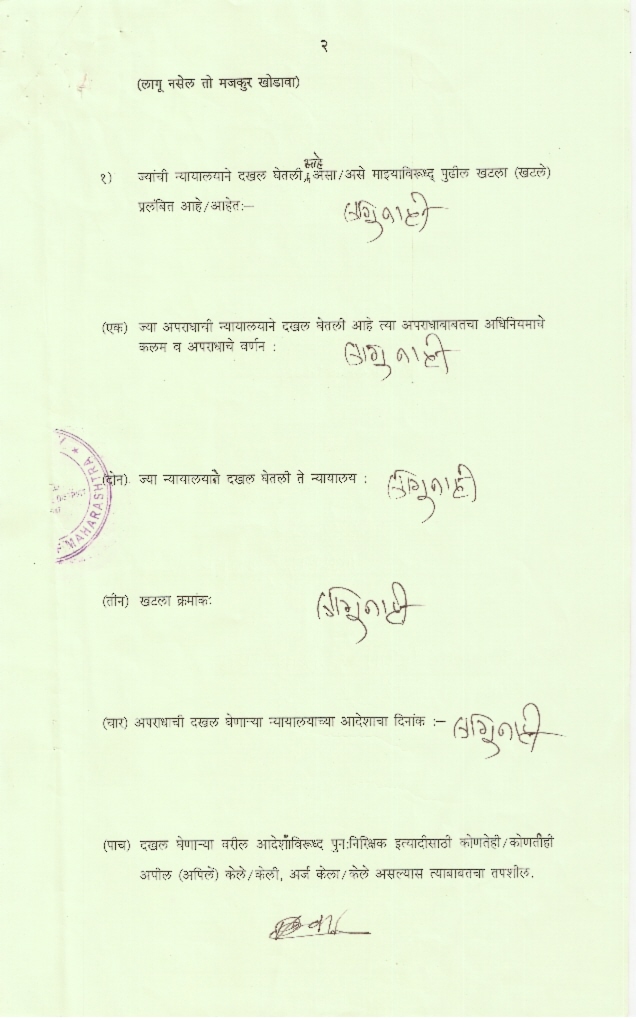 २
(लागू नसेल तो मजकुर खोडावा)
१) ज्यांची न्यायालयाने दखल घेतली आहे असा/असे माझ्याविरूध्द् पुढील खटला (खटले)
प्रलंबित आहे/आहेत:— लागु नाही
(एक) ज्या अपराधाची न्यायालयाने दखल घेतली आहे त्या अपराधाबाबतचा अधिनियमाचे
कलम व अपराधाचे वर्णन : लागु नाही
(दोन) ज्या न्यायालयाने दखल घेतली ते न्यायालय : लागु नाही
MAHARASHTRA
(तीन) खटला क्रमांक: लागु नाही
(चार) अपराधाची दखल घेणाऱ्या न्यायालयाच्या आदेशाचा दिनांक :— लागु नाही
(पाच) दखल घेणाऱ्या वरील आदेशाविरूध्द् पुनःनिरिक्षक इत्यादीसाठी कोणतेही/कोणतीही
अपील (अपिले) केले/केली, अर्ज केला/केले असल्यास त्याबाबतचा तपशील.